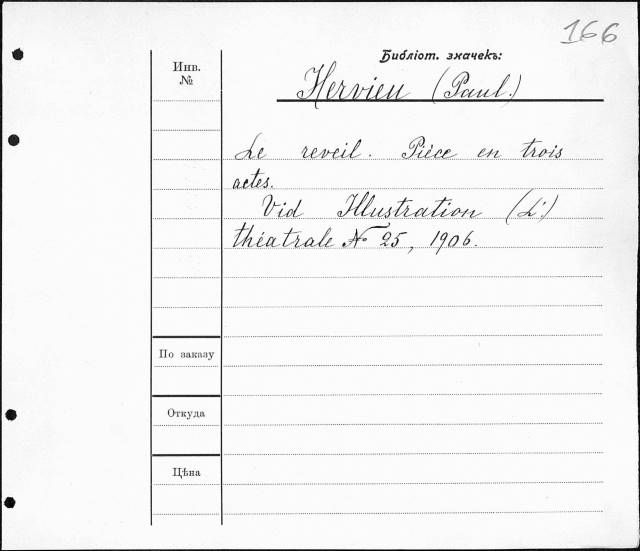 166
Библіот. значекъ:
Инв.
№
Hervieu (Paul.)
Le reveil. Piéce en trois
actes.
Vid Illustration (L')
théatrale № 25, 1906.
По заказу
Откуда
Цѣна